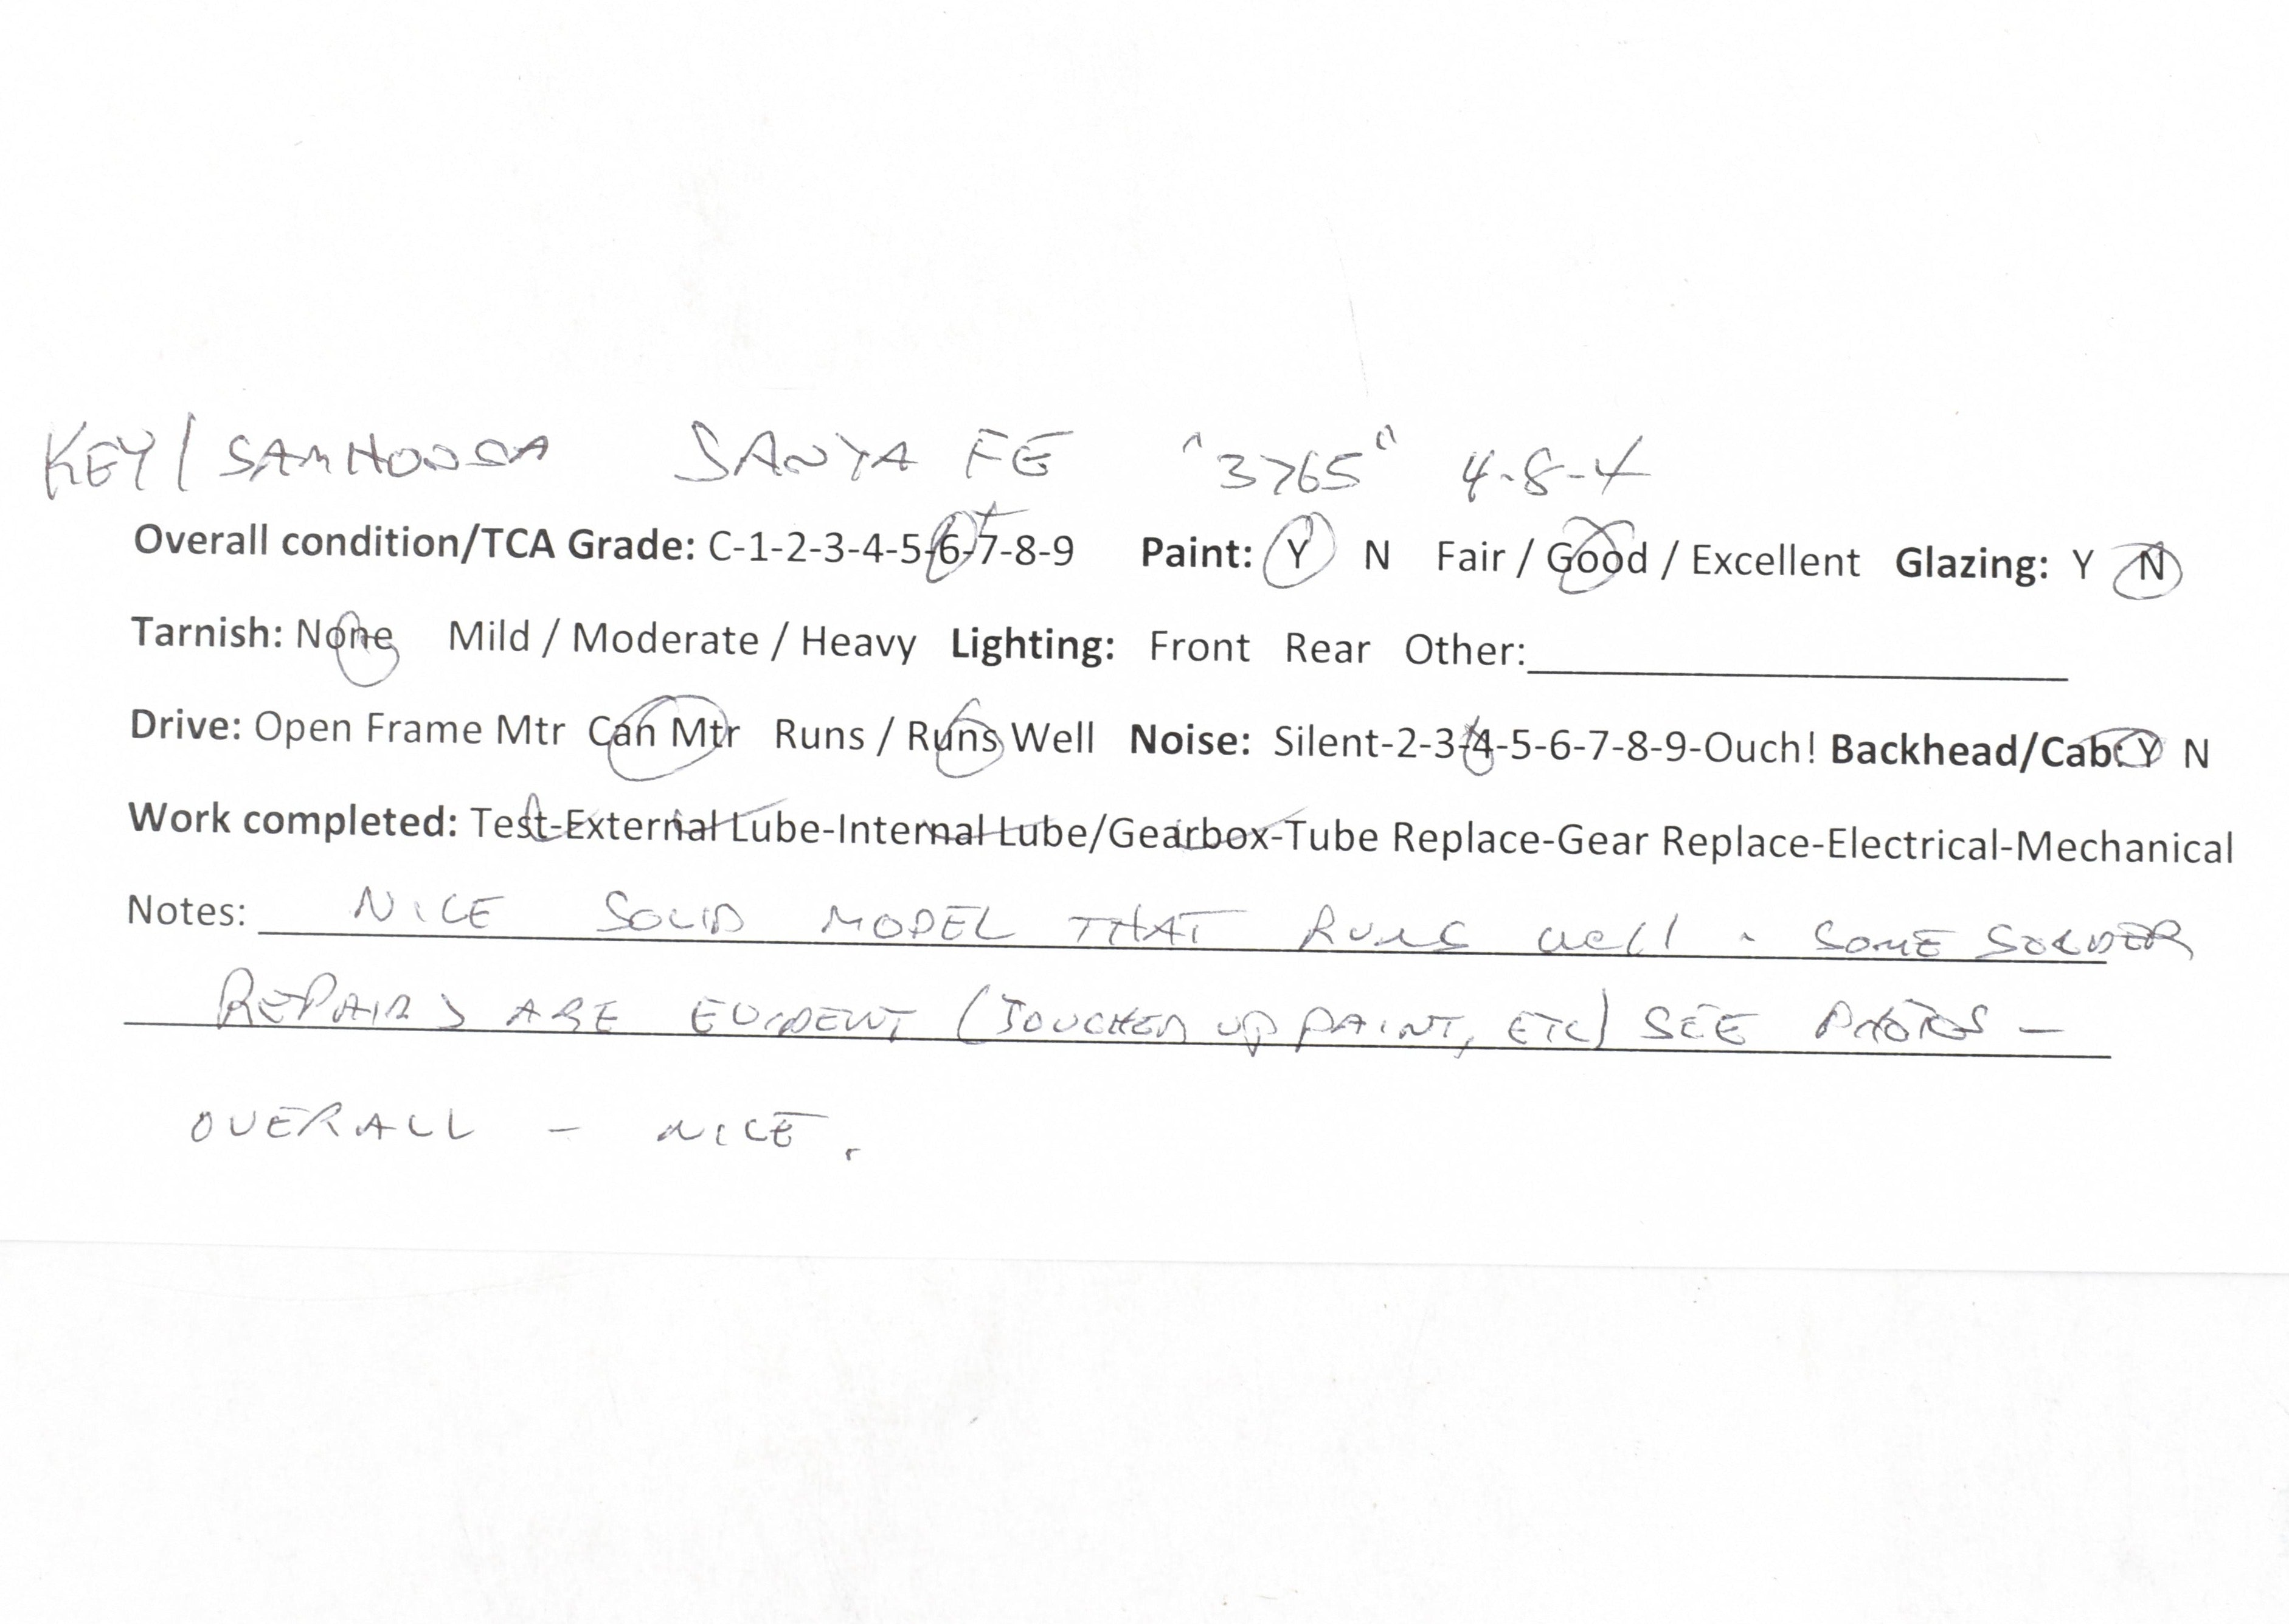 KEY/SAMHONGSA SANTA FE "3765" 4-8-4
Overall condition/TCA Grade: C-1-2-3-4-5-6-7-8-9 Paint: Y N Fair / Good / Excellent Glazing: Y N
Tarnish: None Mild / Moderate / Heavy Lighting: Front Rear Other:
Drive: Open Frame Mtr Can Mtr Runs / Runs Well Noise: Silent-2-3-4-5-6-7-8-9-Ouch! Backhead/Cab: Y N
Work completed: Test-External Lube-Internal Lube/Gearbox-Tube Replace-Gear Replace-Electrical-Mechanical
Notes: NICE SOLID MODEL THAT RUNS WELL - SOME SOLDER
REPAIRS ARE EVIDENT (TOUCHED UP PAINT, ETC) SEE PHOTOS -
OVERALL - NICE.